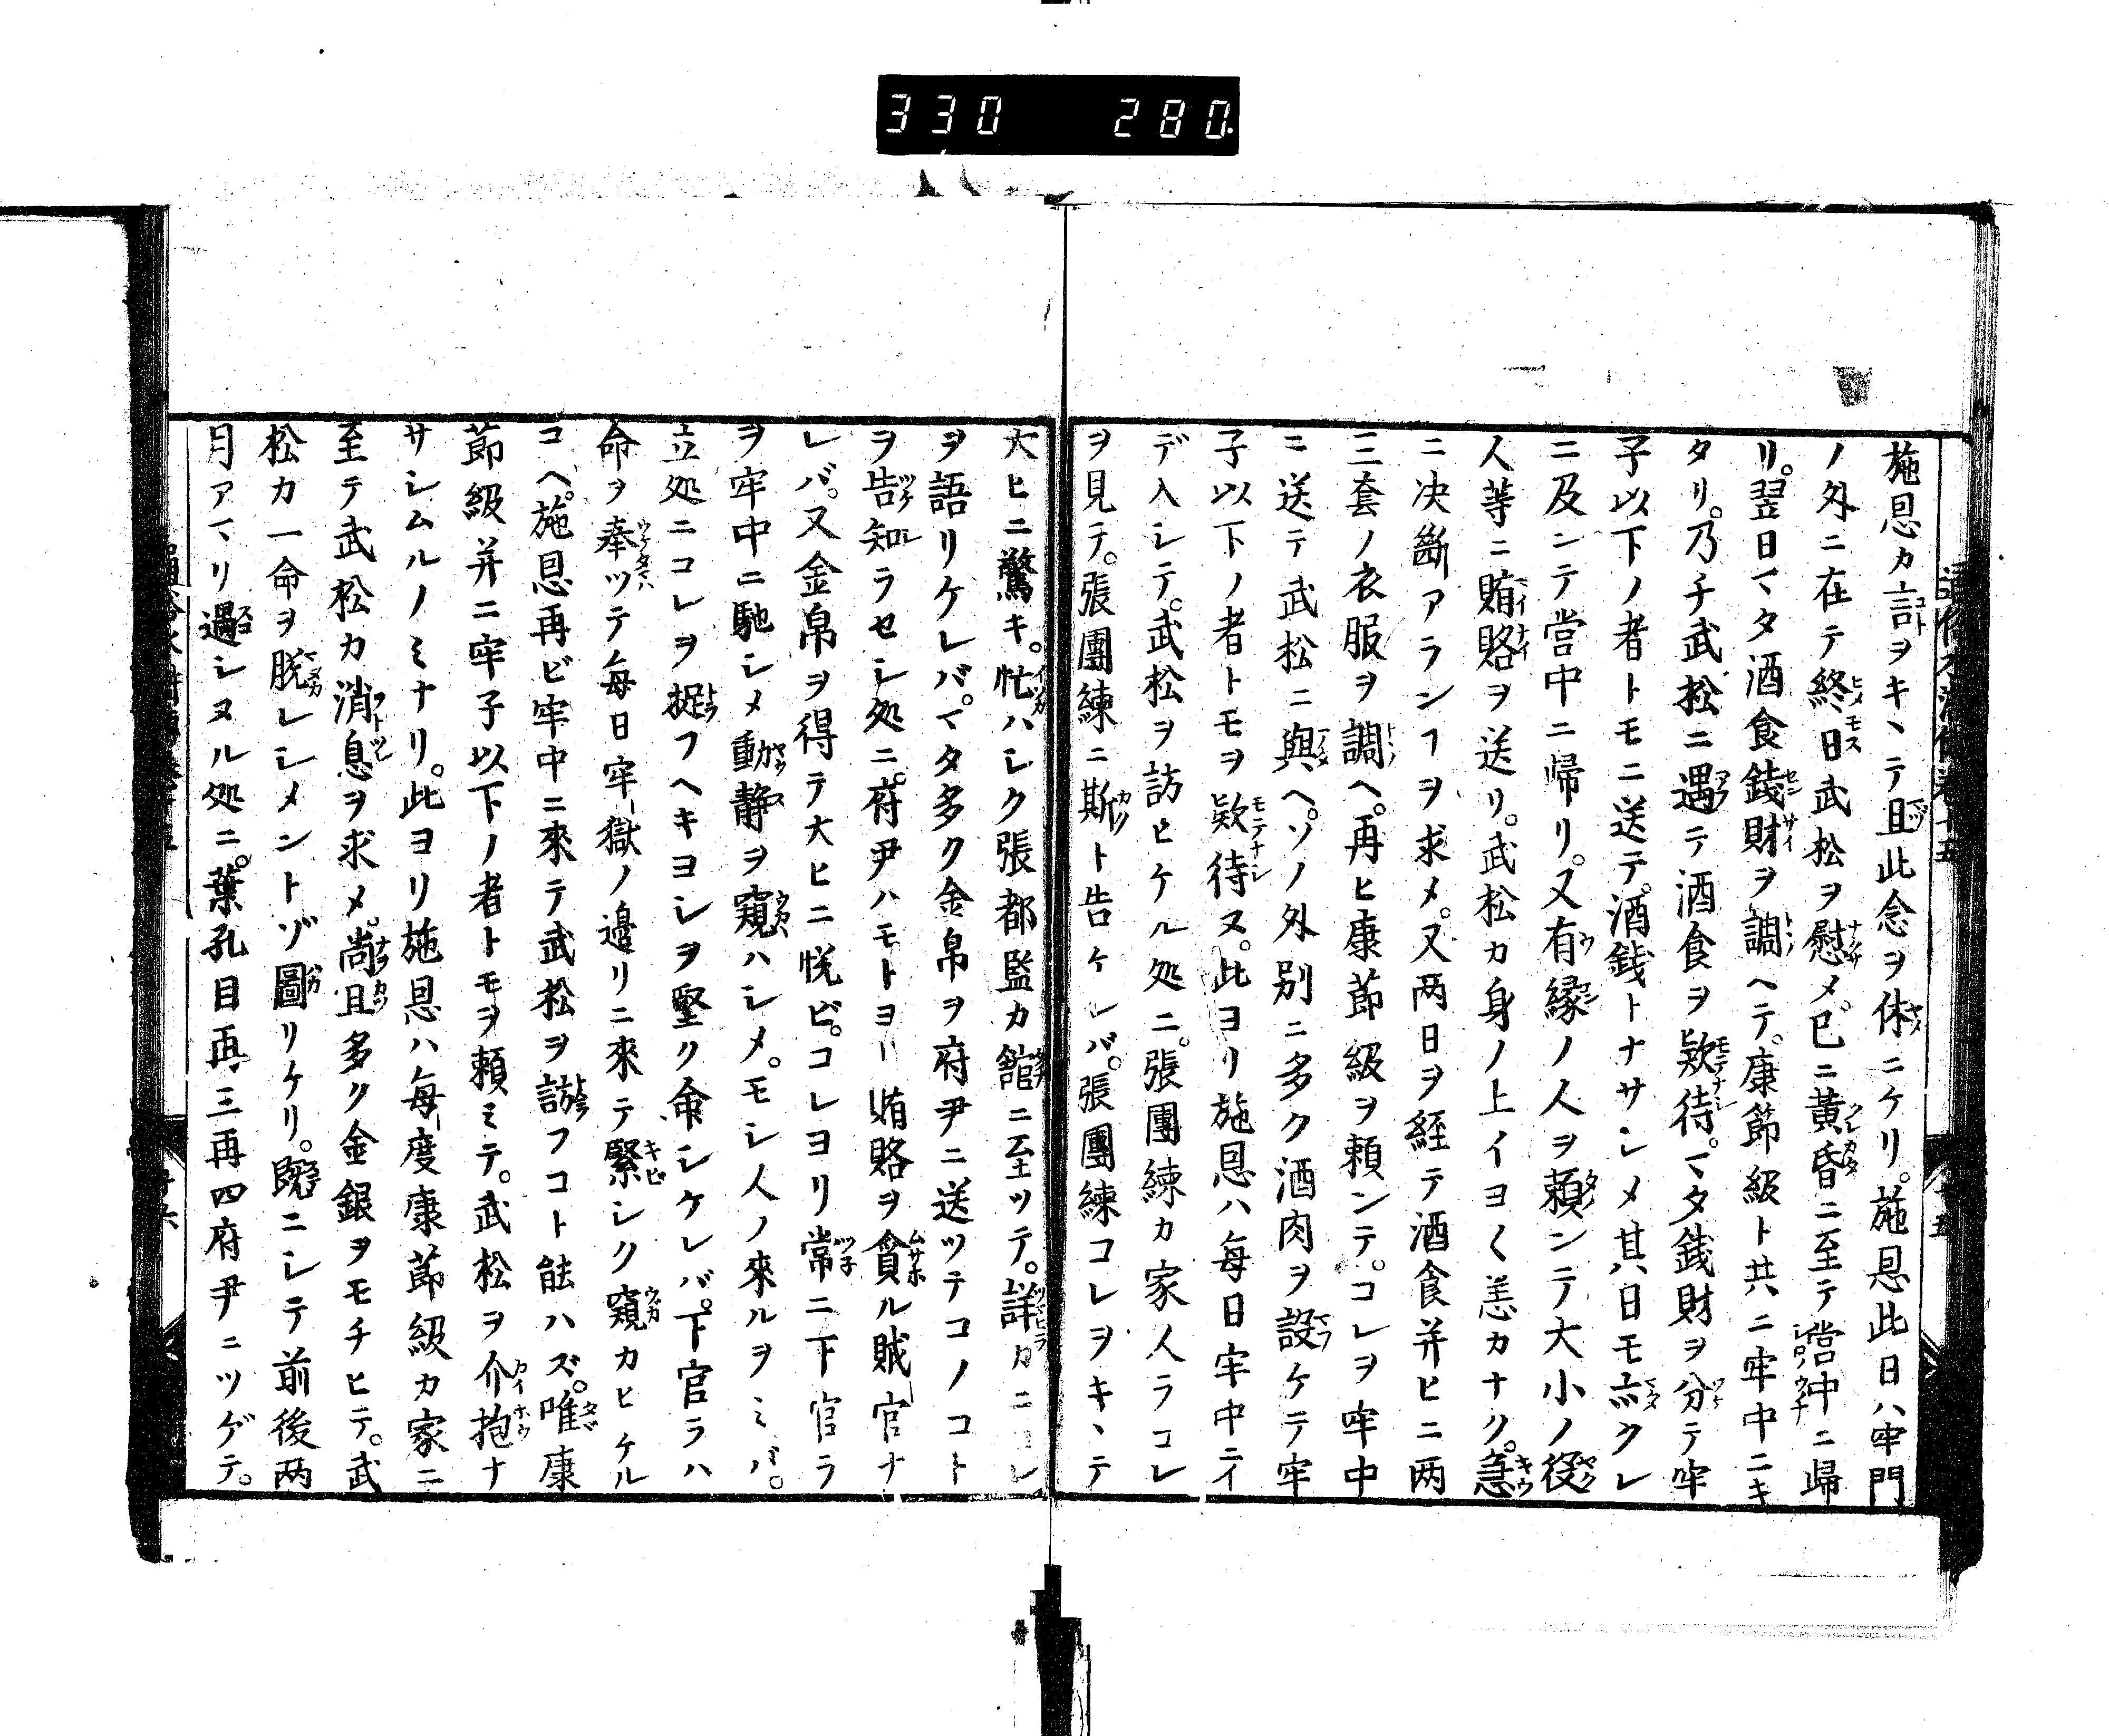 330 280
施恩カ言ヲキヽテ且此念ヲ休ニケリ。施恩此日ハ牢門
ノ外ニ在テ終日武松ヲ慰メ。已ニ黄昏ニ至テ営中ニ歸
リ。翌日マタ酒食錢財ヲ調ヘテ。康節級ト共ニ牢中ニキ
タリ。乃チ武松ニ遇テ酒食ヲ欵待。マタ錢財ヲ分テ牢
子以下ノ者トモニ送テ。酒錢トナサシメ其日モ亦クレ
ニ及ンテ営中ニ帰リ。又有縁ノ人ヲ頼ンテ大小ノ役
人等ニ賄賂ヲ送リ。武松カ身ノ上イヨ〱恙カナク。急
ニ决斷アランヿヲ求メ。又两日ヲ経テ酒食并ヒニ两
三套ノ衣服ヲ調ヘ。再ヒ康節級ヲ頼ンテ。コレヲ牢中
ニ送テ武松ニ與ヘ。ソノ外別ニ多ク酒肉ヲ設ケテ牢
子以下ノ者トモヲ欵待ヌ。此ヨリ施恩ハ毎日牢中ニイ
デ入シテ。武松ヲ訪ヒケル処ニ。張團練カ家人ラコレ
ヲ見テ。張團練ニ斯ト告ケレバ。張團練コレヲキヽテ
大ヒニ驚キ。忙ハシク張都監カ舘ニ至ツテ。詳カニコレ
ヲ語リケレバ。マタ多ク金帛ヲ府尹ニ送ツテコノコト
ヲ告知ラセシ処ニ。府尹ハモトヨリ賄賂ヲ貪ル賊官ナ
レバ。又金帛ヲ得テ大ヒニ悦ビ。コレヨリ常ニ下官ラ
ヲ牢中ニ馳シメ動静ヲ窺ハシメ。モシ人ノ來ルヲミバ。
立処ニコレヲ捉フヘキヨシヲ堅ク命シケレバ。下官ラハ
命ヲ奉ツテ毎日牢獄ノ邉リニ來テ緊シク窺カヒケル
コヘ。施恩再ビ牢中ニ來テ武松ヲ訪フコト能ハズ。唯康
節級并ニ牢子以下ノ者トモヲ頼ミテ。武松ヲ介抱ナ
サシムルノミナリ。此ヨリ施恩ハ毎度康節級カ家ニ
至テ武松カ消息ヲ求メ。尚且多ク金銀ヲモチヒテ。武
松カ一命ヲ脱レシメントゾ圖リケリ。既ニシテ前後两
月アマリ過シヌル処ニ。葉孔目再三再四府尹ニツゲテ。